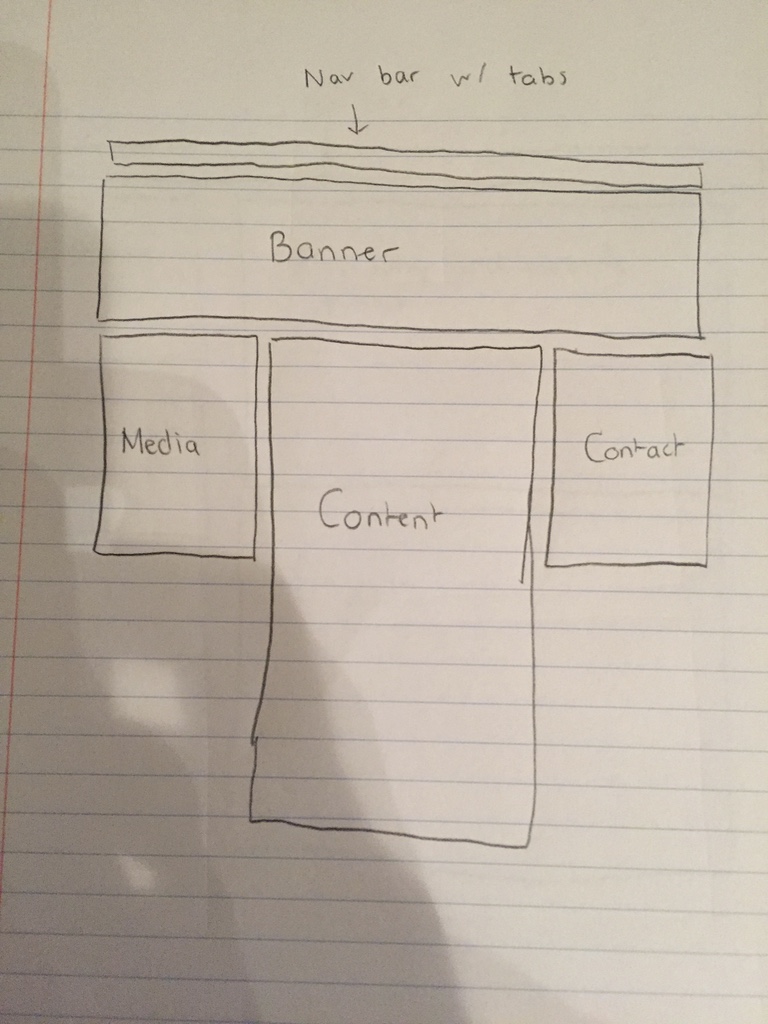 Nav bar w/ tabs
Banner
Media
Content
Contact